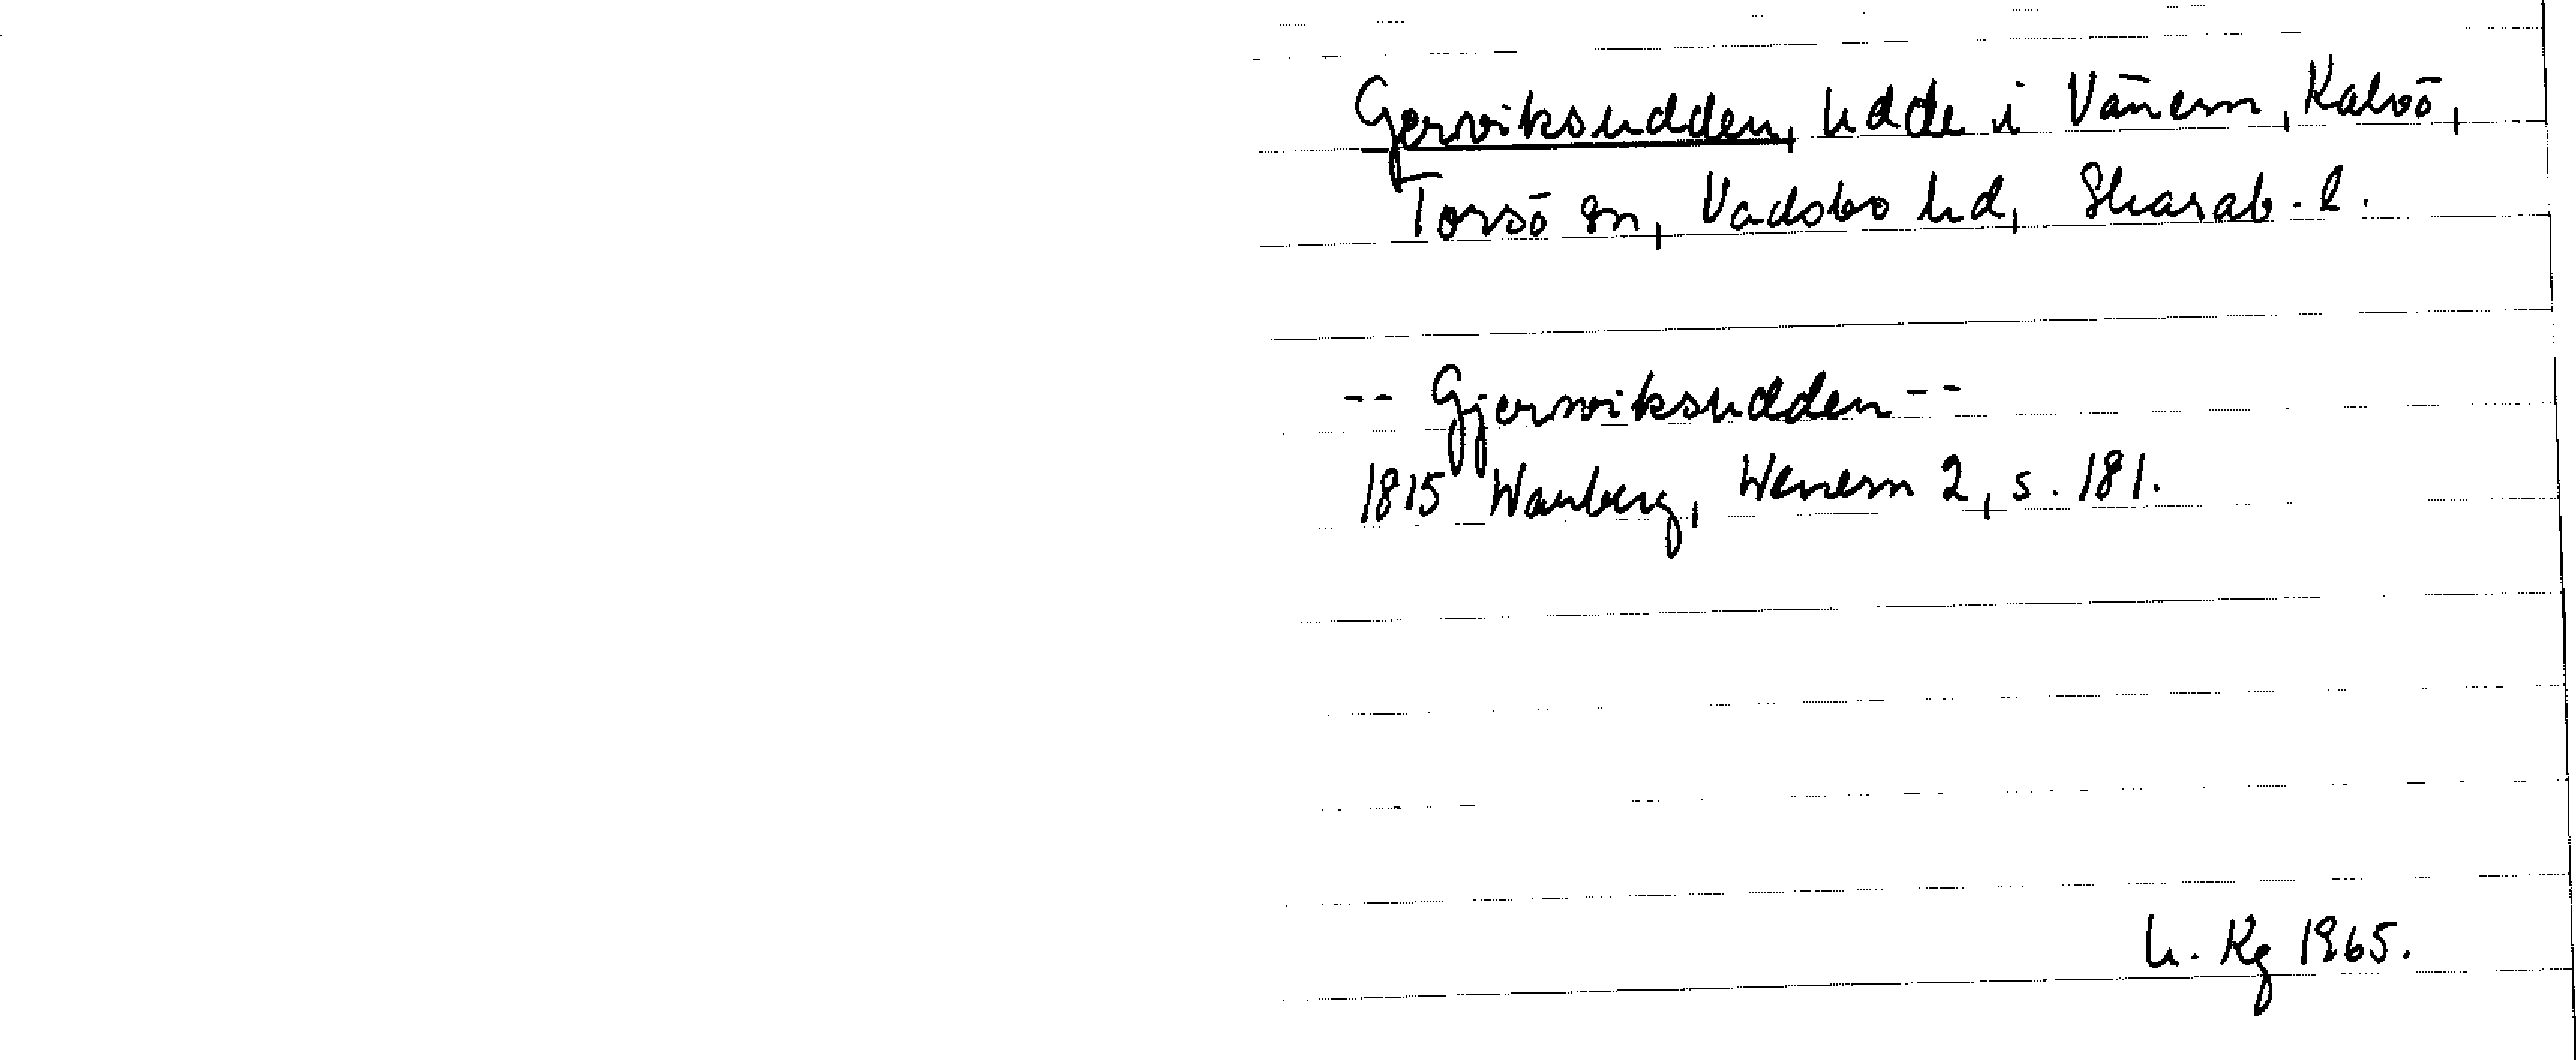 Gerviksudden, udde i Vänern, Kalvö,
Torsö sn, Vadsbo hd, Skarab. l.
-- Gjerwiksudden --
1815 Warberg, Wenern 2, s. 181.
U. Kg 1965.